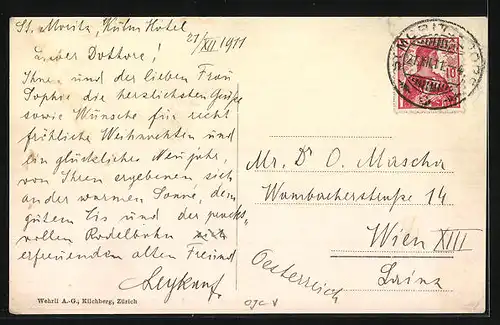 St. Moritz, Kulm Hotel
21/XII 1911
Lieber Dottore!
Ihnen und der lieben Frau
Sophie die herzlichsten Grüße
sowie Wünsche für recht
fröhliche Weihnachten und
ein glückliches Neujahr,
von Ihrem ergebenen sich
an der warmen Sonne, dem
gutem Eis und der pracht-
vollen Rodelbahn
erfreuenden alten Freund
Wehrli A.-G., Kilchberg, Zürich
ST. MORITZ-DORF
Mr. Dr O. Mascha
Wambacherstraße 14
Wien XIII
Lainz
Oesterreich